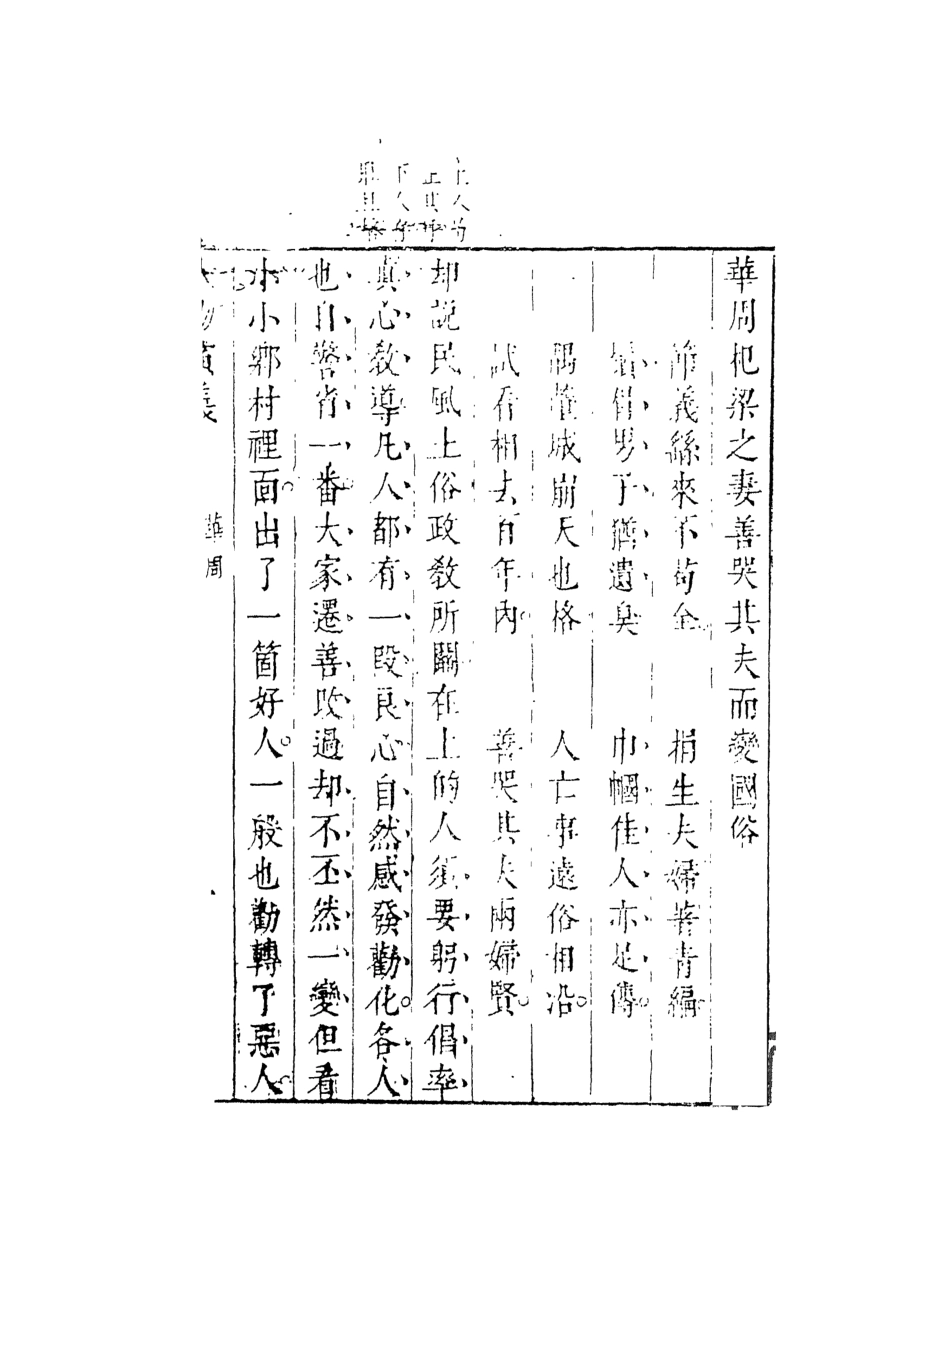 華周杞梁之妻善哭其夫而變國俗
節義緣來不苟全 捐生夫婦著青編
男子猶遺臭 巾幗佳人亦足傳
城崩天也格 人亡事遠俗相沿
試看相去百年內 善哭其夫兩婦賢
却說民風土俗政教所關在上的人須要躬行倡率
真心教導凡人都有一段良心自然感發勸化各人
也自警省一番大家遷善改過却不丕然一變但看
小小鄉村裡面出了一箇好人一般也勸轉了惡人
華周